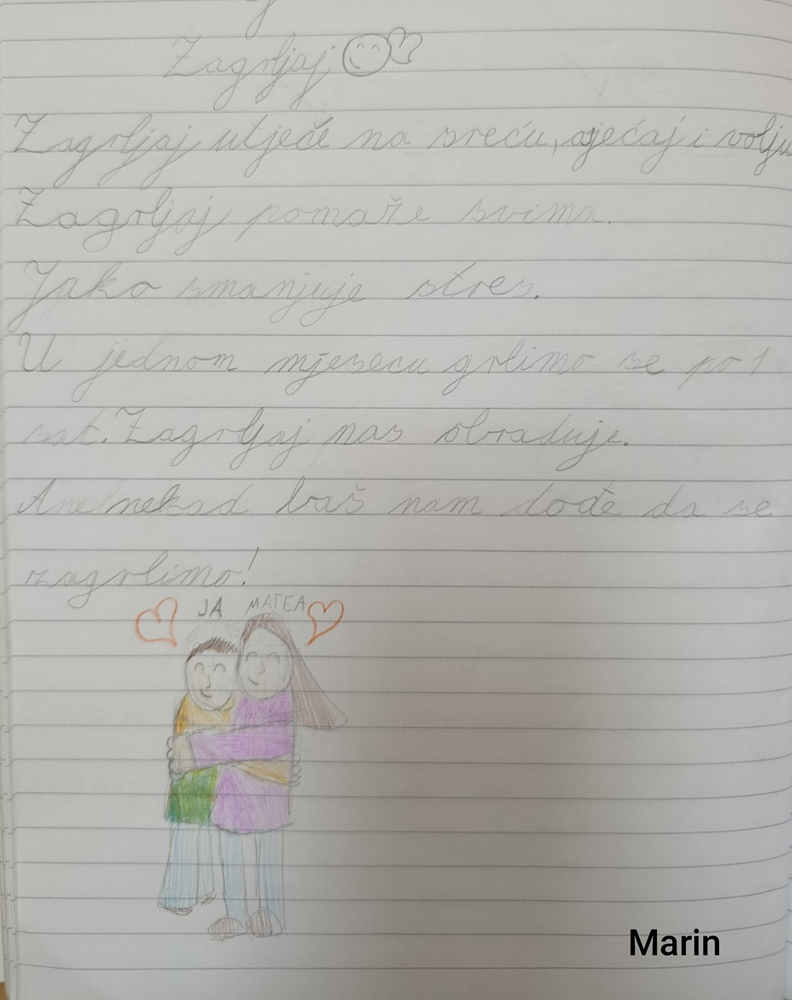 Zagrljaj
Zagrljaj utječe na sreću, osjećaj i volju
Zagrljaj pomaže svima.
Jako smanjuje stres.
U jednom mjesecu grlimo se po 1
sat. Zagrljaj nas obraduje.
nekad baš nam dođe da se
zagrlimo!
JA MATEA
Marin